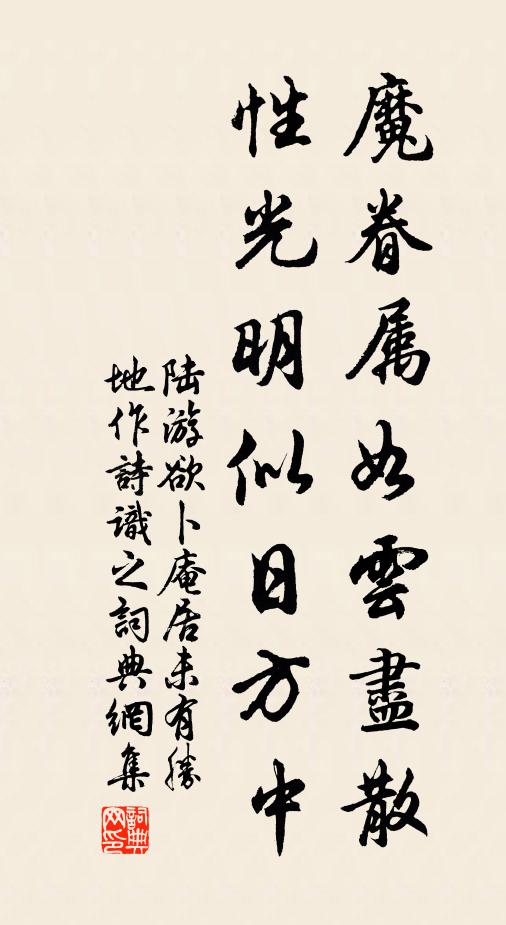 魔眷属如雲盡散
性光明似日方中
陆游欲卜庵居未有勝
地作詩識之詞典網集
詞典網印